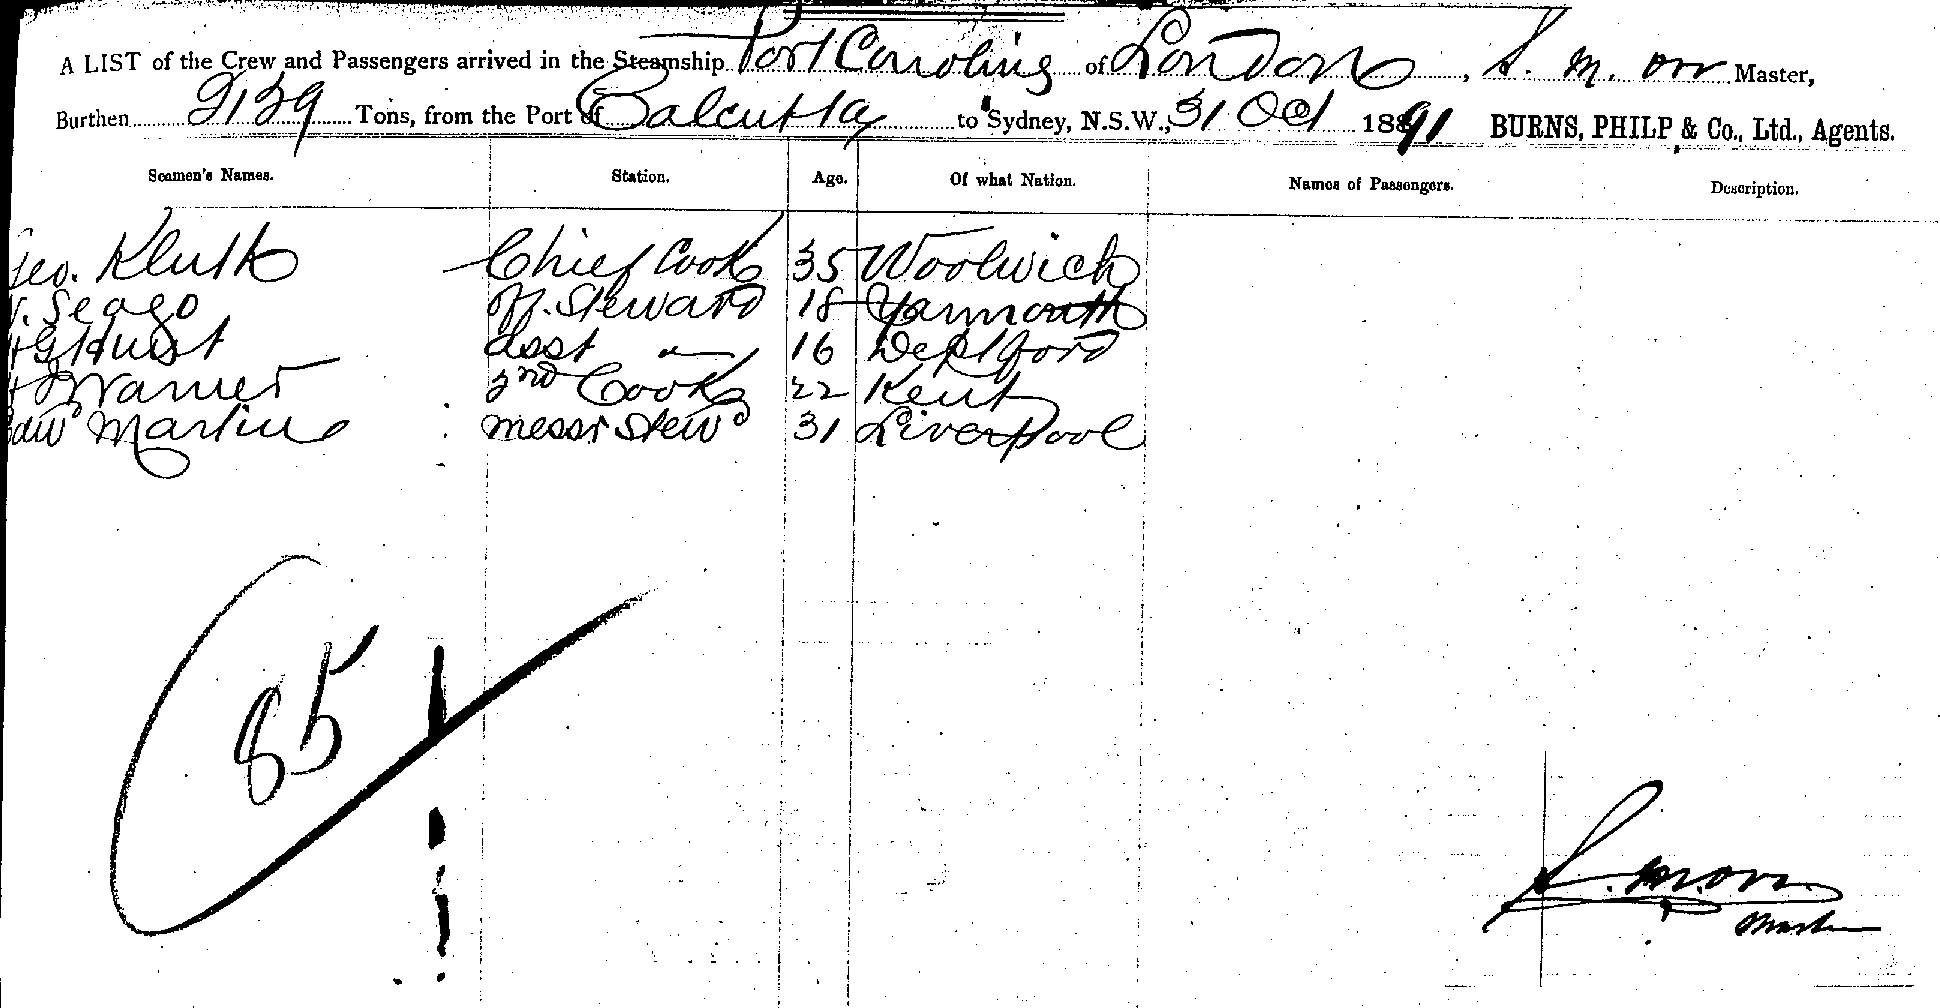 A LIST of the Crew and Passengers arrived in the Steamship Port Caroline of London, S. M. Orr Master,
Burthen Tons, from the Port of Calcutta to Sydney, N.S.W., 31 Oct 1891 BURNS, PHILP & Co., Ltd., Agents.
Seamen's Names. Station. Age. Of what Nation. Names of Passengers. Description.
Geo. Kluth Chief Cook 35 Woolwich
Seago Steward 18 Yarmouth
Hurst Asst 16 Deptford
Warner Cook 22 Kent
Martin Stewd 31 Liverpool
85
S. M. Orr
Master